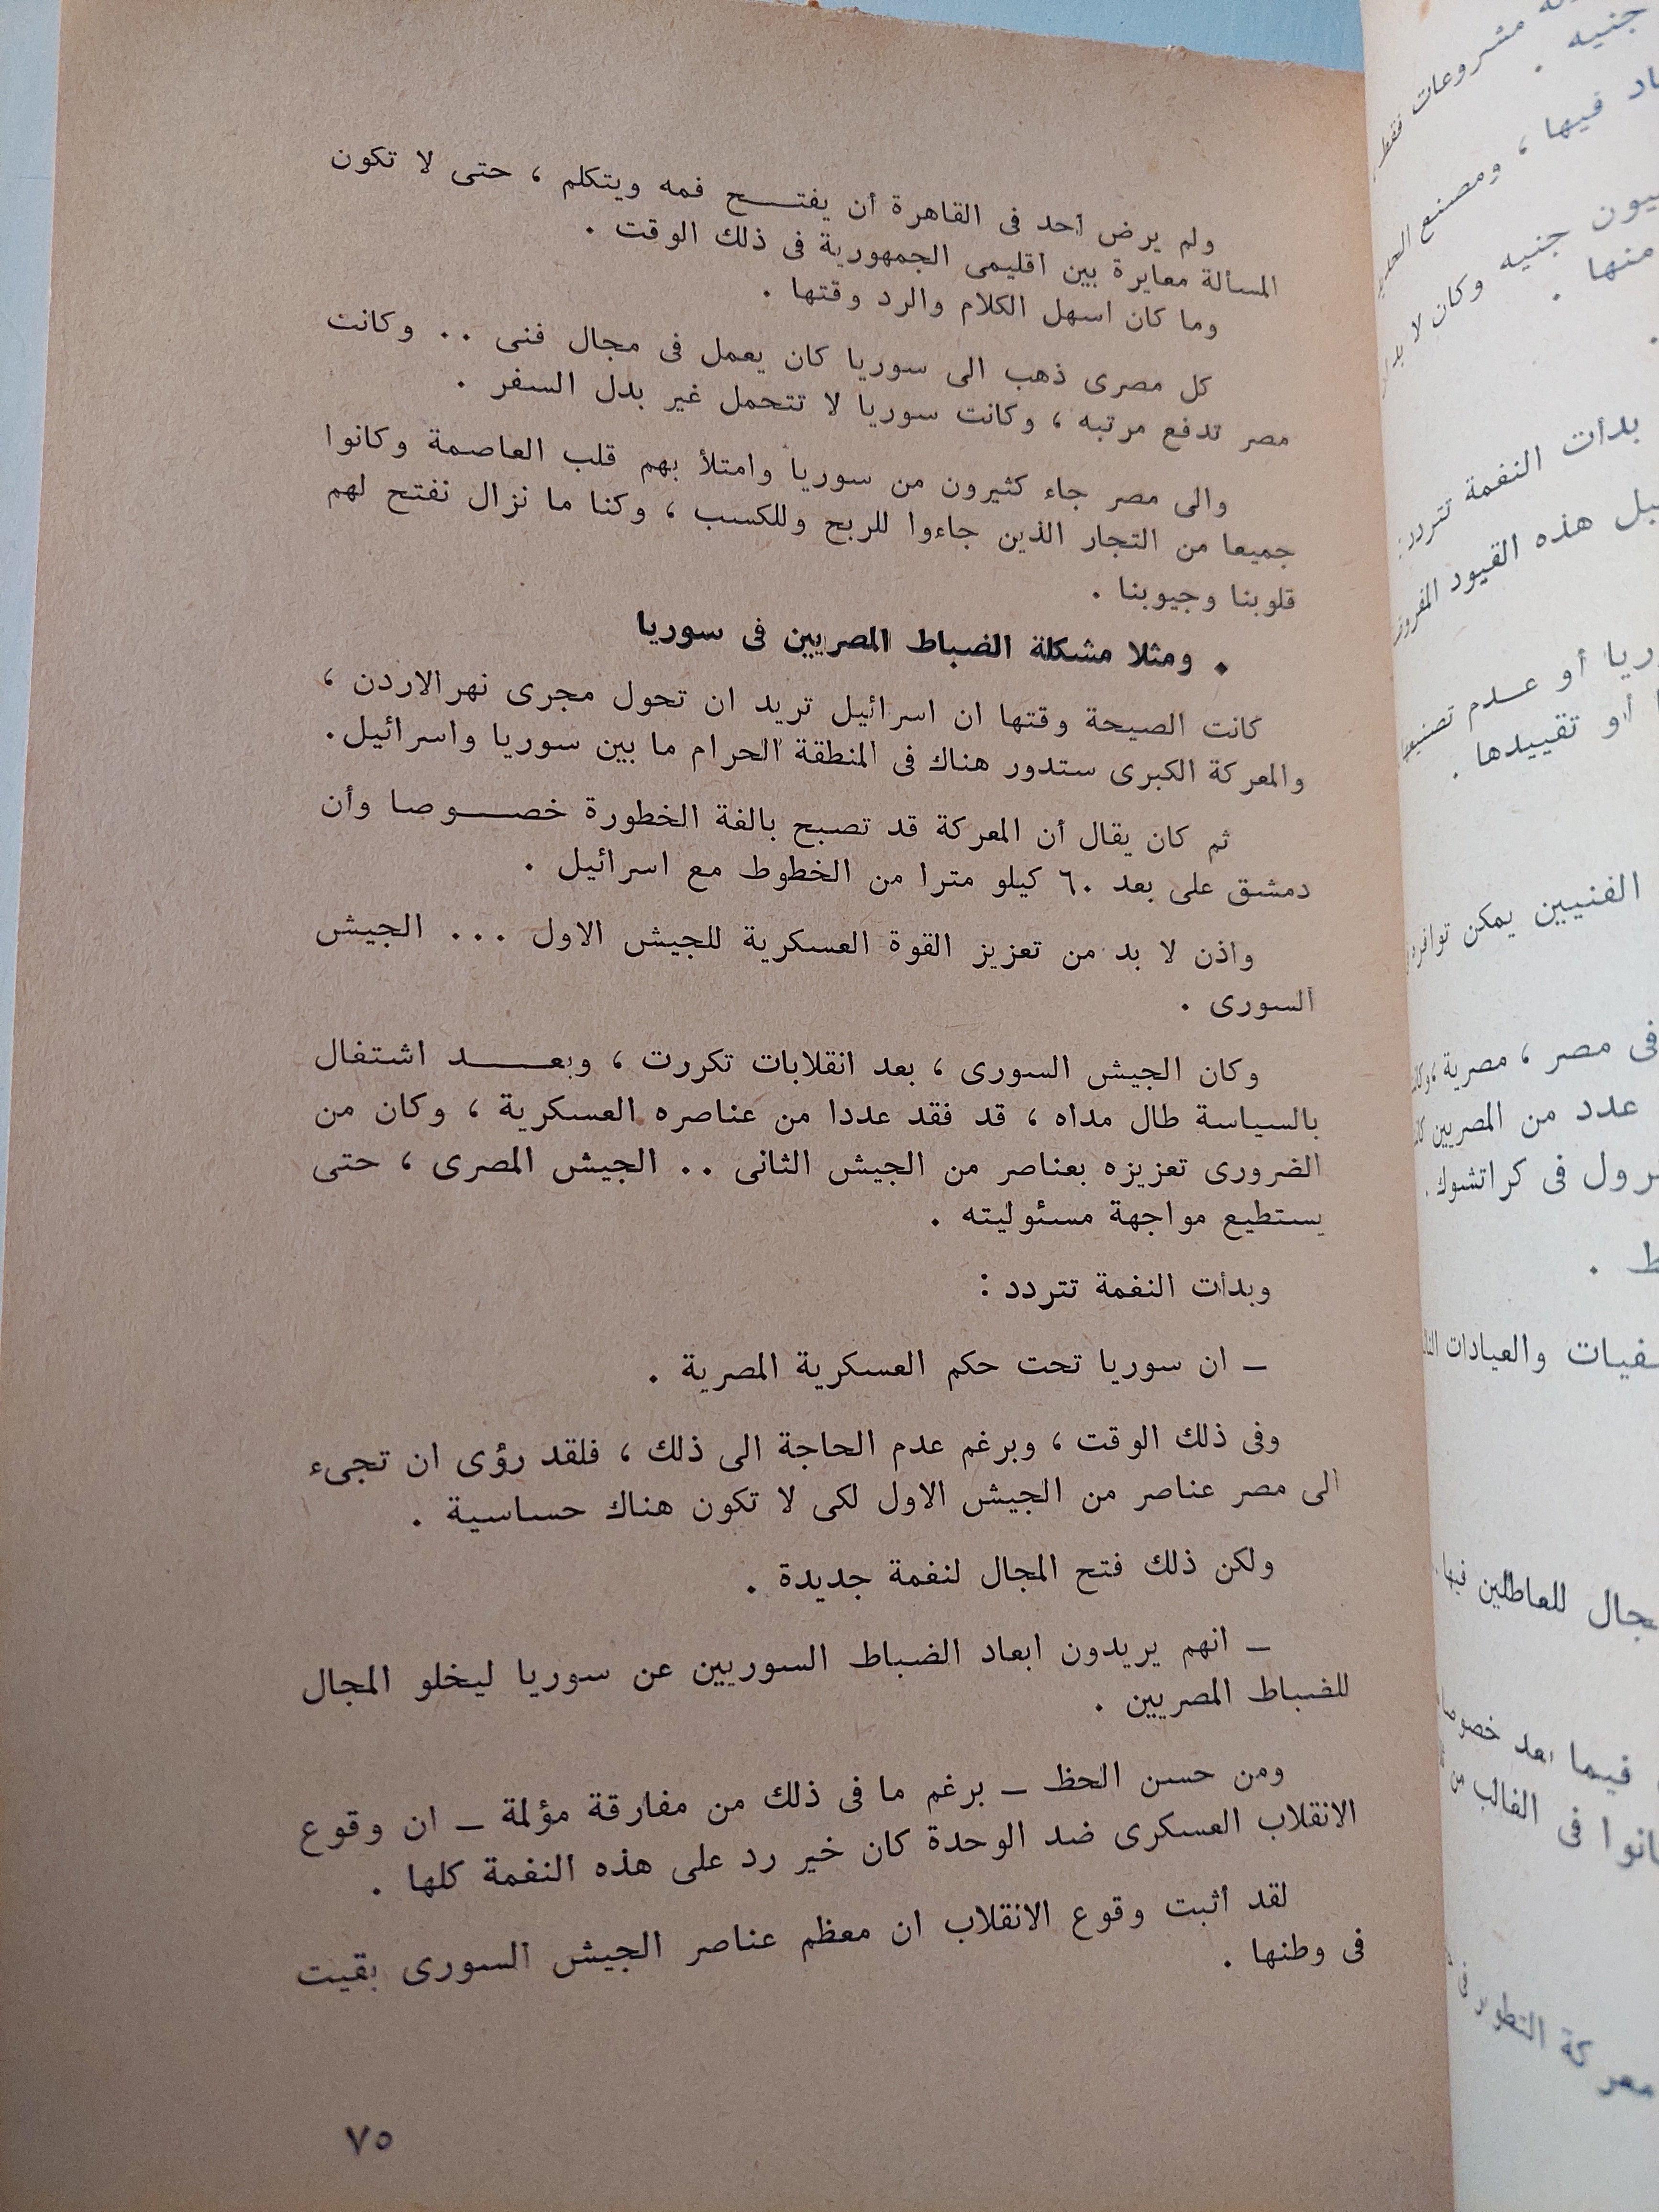 ولم يرض أحد فى القاهرة أن يفتـــح فمه ويتكلم ، حتى لا تكون
المسألة معايرة بين اقليمى الجمهورية فى ذلك الوقت .
وما كان اسهل الكلام والرد وقتها .
كل مصرى ذهب الى سوريا كان يعمل فى مجال فنى .. وكانت
مصر تدفع مرتبه ، وكانت سوريا لا تتحمل غير بدل السفر .
والى مصر جاء كثيرون من سوريا وامتلأ بهم قلب العاصمة وكانوا
جميعا من التجار الذين جاءوا للربح وللكسب ، وكنا ما نزال نفتح لهم
قلوبنا وجيوبنا .
• ومثلا مشكلة الضباط المصريين فى سوريا
كانت الصيحة وقتها ان اسرائيل تريد ان تحول مجرى نهر الاردن ،
والمعركة الكبرى ستدور هناك فى المنطقة الحرام ما بين سوريا واسرائيل .
ثم كان يقال أن المعركة قد تصبح بالغة الخطورة خصـــوصا وأن
دمشق على بعد ٦٠ كيلو مترا من الخطوط مع اسرائيل .
واذن لا بد من تعزيز القوة العسكرية للجيش الاول ... الجيش
السورى .
وكان الجيش السورى ، بعد انقلابات تكررت ، وبعـــد اشتغال
بالسياسة طال مداه ، قد فقد عددا من عناصره العسكرية ، وكان من
الضرورى تعزيزه بعناصر من الجيش الثانى .. الجيش المصرى ، حتى
يستطيع مواجهة مسئوليته .
وبدأت النغمة تتردد :
ــ ان سوريا تحت حكم العسكرية المصرية .
وفى ذلك الوقت ، وبرغم عدم الحاجة الى ذلك ، فلقد رؤى ان تجىء
الى مصر عناصر من الجيش الاول لكى لا تكون هناك حساسية .
ولكن ذلك فتح المجال لنغمة جديدة .
ــ انهم يريدون ابعاد الضباط السوريين عن سوريا ليخلو المجال
للضباط المصريين .
ومن حسن الحظ ــ برغم ما فى ذلك من مفارقة مؤلمة ــ ان وقوع
الانقلاب العسكرى ضد الوحدة كان خير رد على هذه النغمة كلها .
لقد أثبت وقوع الانقلاب ان معظم عناصر الجيش السورى بقيت
فى وطنها .
٧٥
مشروعات فقط
جنيه .
فيها ، ومصنع
جنيه وكان لا بد
منها .
بدأت النغمة تتردد :
هذه القيود
أو عــدم
أو تقييدها .
الفنيين يمكن
فى مصر ، مصرية ،
عدد من المصريين
فى كراتشوك .
والعيادات
للعاطلين فيها
فيما بعد خصوصا
فى الغالب من